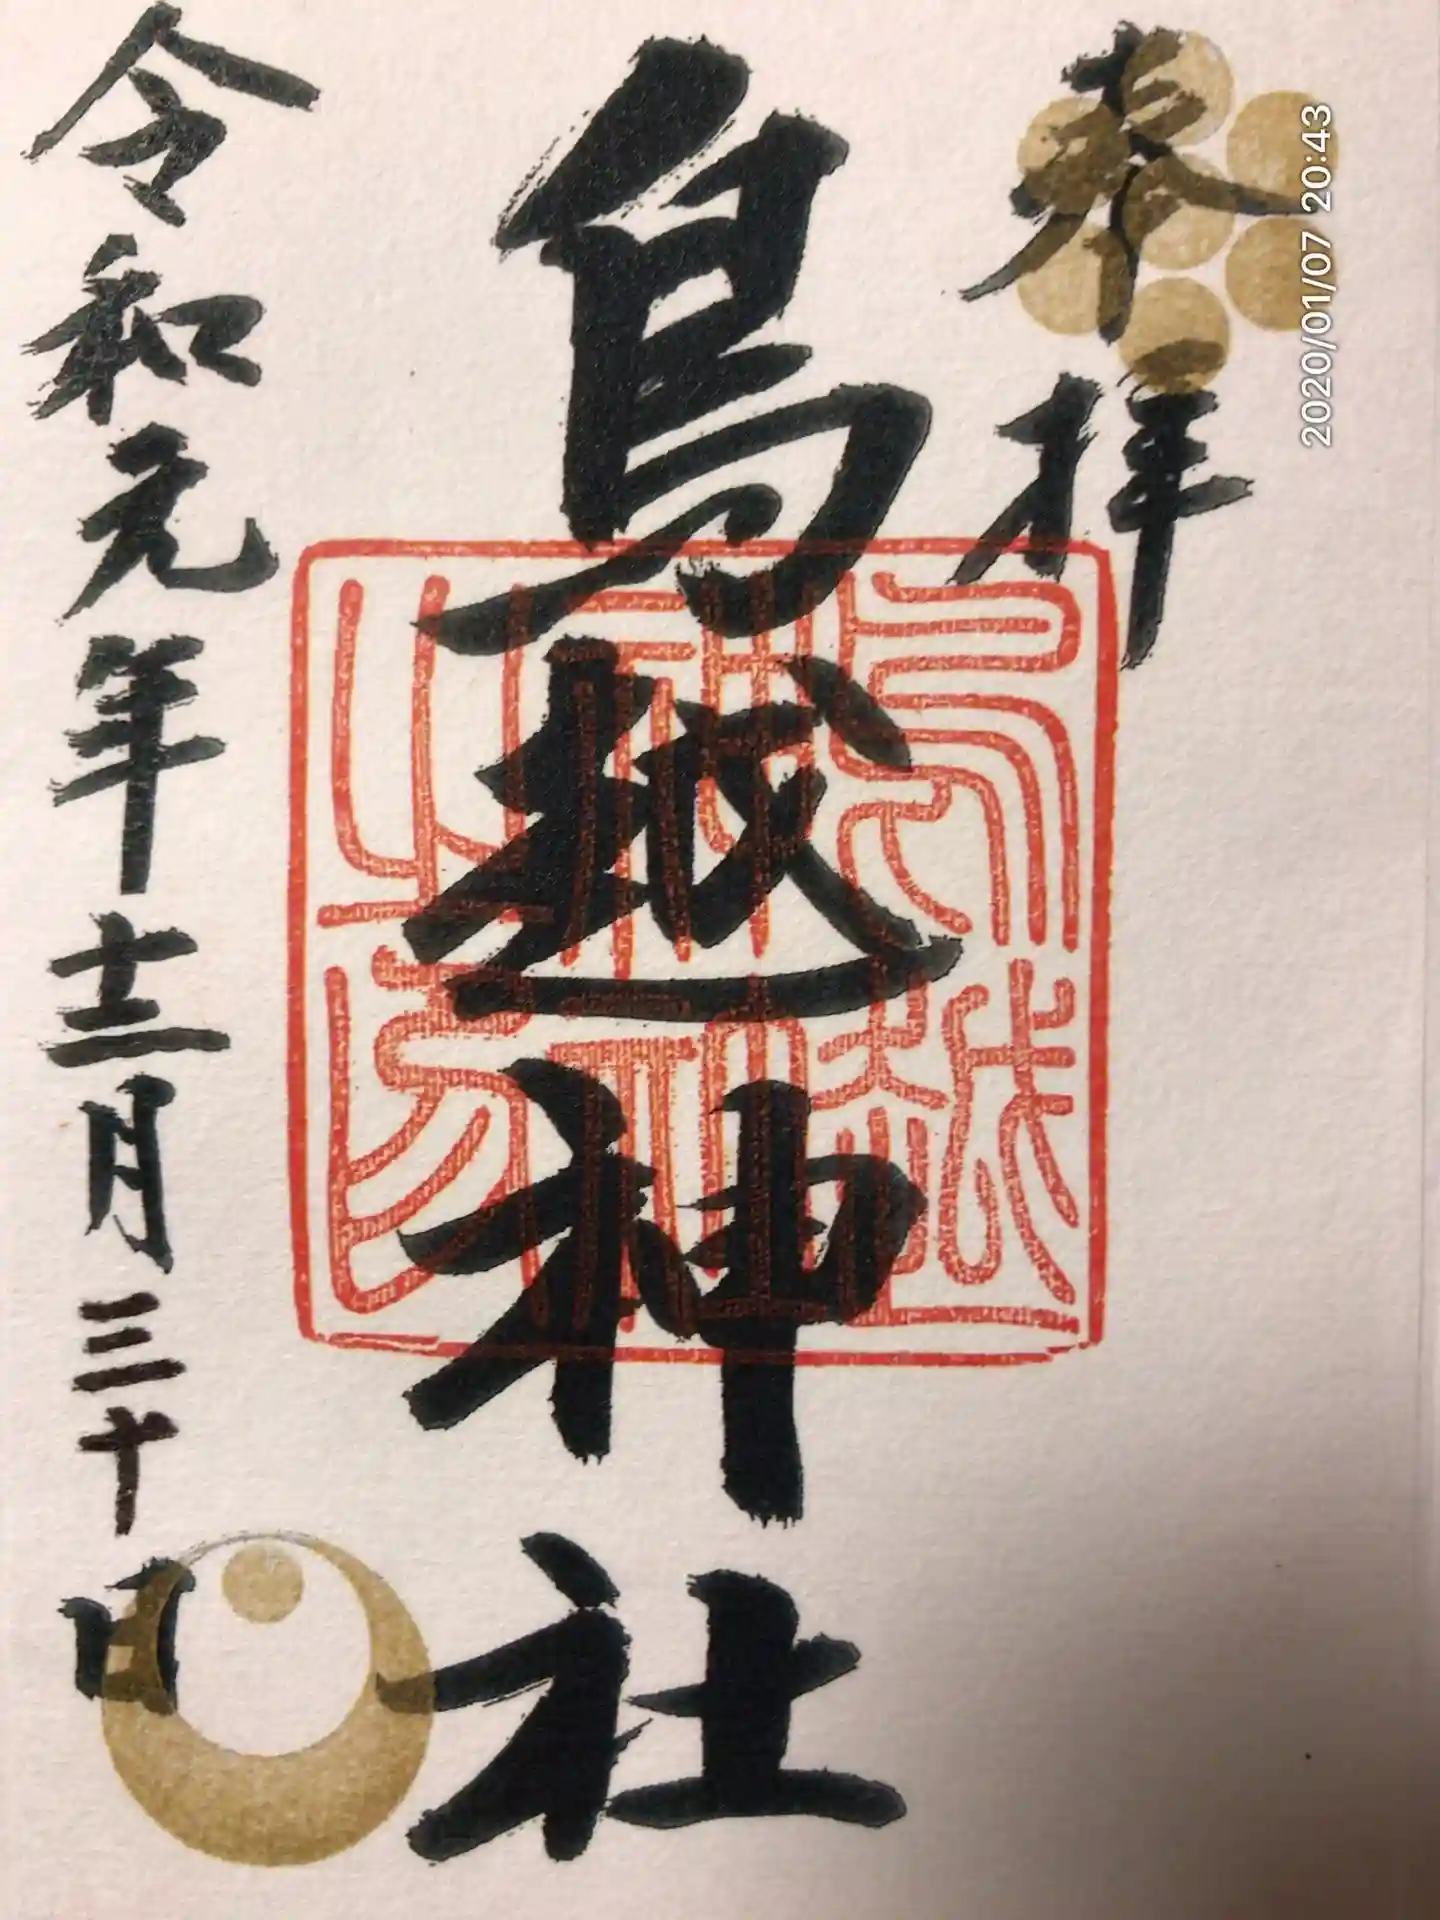 奉拝
鳥越神社
鳥越神社之印
令和元年十二月三十日
2020/01/07 20:43